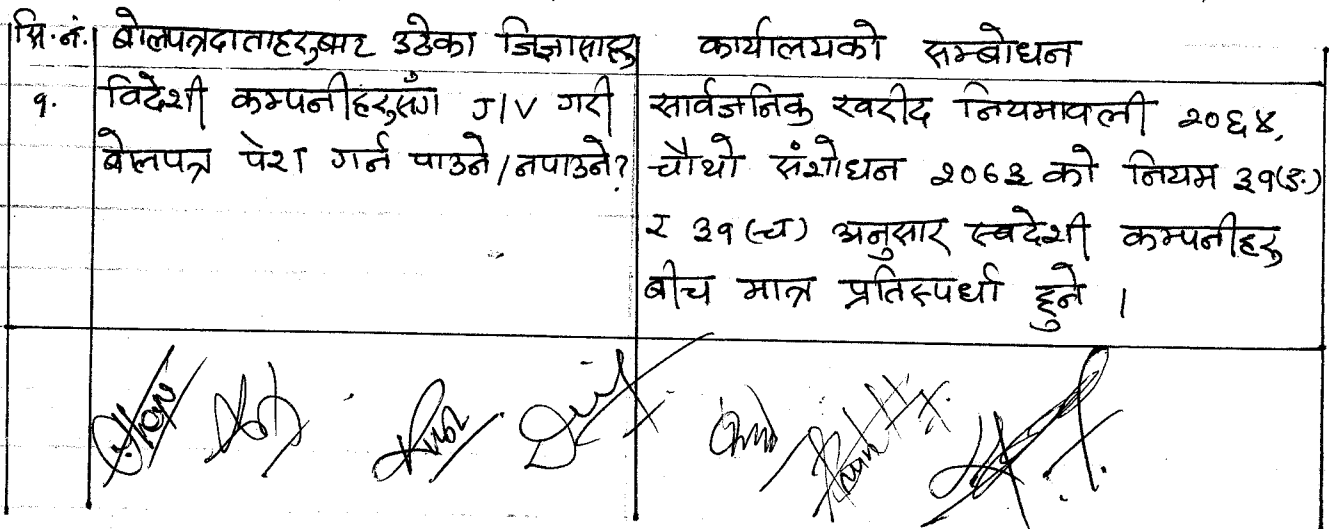 सि.नं. बोलपत्रदाताहरुबाट उठेका जिज्ञासाहरु कार्यालयको सम्बोधन
१. विदेशी कम्पनीहरुसँग J/V गरी
बोलपत्र पेश गर्न पाउने/नपाउने?
सार्वजनिक खरीद नियमावली २०६४,
चौथो संशोधन २०७३ को नियम ३१(ङ)
र ३१(च) अनुसार स्वदेशी कम्पनीहरु
बीच मात्र प्रतिस्पर्धा हुने ।